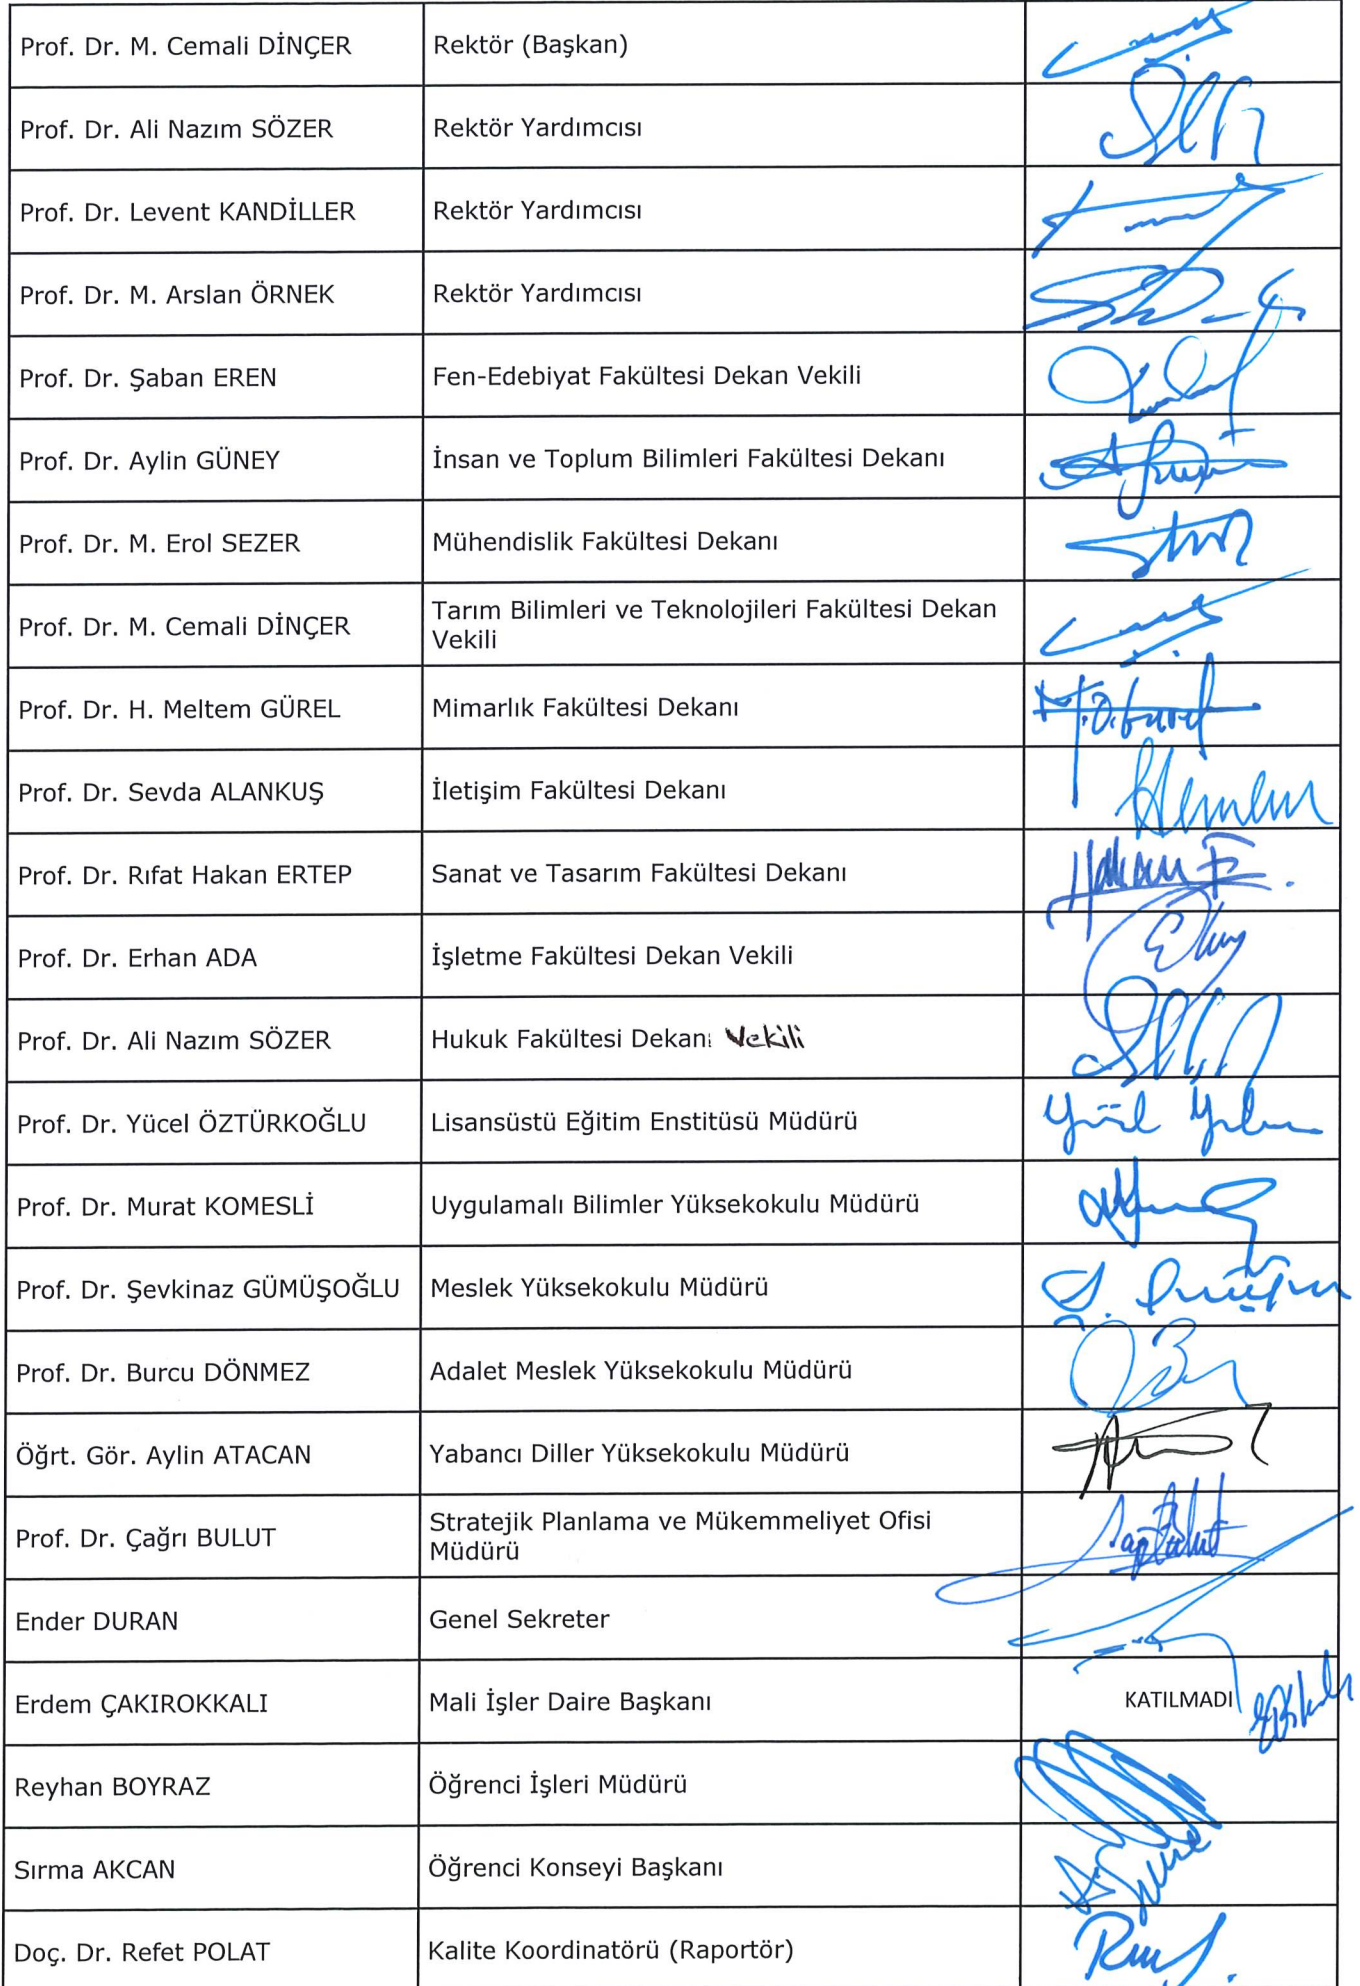 Prof. Dr. M. Cemali DİNÇER Rektör (Başkan)
Prof. Dr. Ali Nazım SÖZER Rektör Yardımcısı
Prof. Dr. Levent KANDİLLER Rektör Yardımcısı
Prof. Dr. M. Arslan ÖRNEK Rektör Yardımcısı
Prof. Dr. Şaban EREN Fen-Edebiyat Fakültesi Dekan Vekili
Prof. Dr. Aylin GÜNEY İnsan ve Toplum Bilimleri Fakültesi Dekanı
Prof. Dr. M. Erol SEZER Mühendislik Fakültesi Dekanı
Prof. Dr. M. Cemali DİNÇER Tarım Bilimleri ve Teknolojileri Fakültesi Dekan
Vekili
Prof. Dr. H. Meltem GÜREL Mimarlık Fakültesi Dekanı
Prof. Dr. Sevda ALANKUŞ İletişim Fakültesi Dekanı
Prof. Dr. Rıfat Hakan ERTEP Sanat ve Tasarım Fakültesi Dekanı
Prof. Dr. Erhan ADA İşletme Fakültesi Dekan Vekili
Prof. Dr. Ali Nazım SÖZER Hukuk Fakültesi Dekanı Vekili
Prof. Dr. Yücel ÖZTÜRKOĞLU Lisansüstü Eğitim Enstitüsü Müdürü
Prof. Dr. Murat KOMESLİ Uygulamalı Bilimler Yüksekokulu Müdürü
Prof. Dr. Şevkinaz GÜMÜŞOĞLU Meslek Yüksekokulu Müdürü
Prof. Dr. Burcu DÖNMEZ Adalet Meslek Yüksekokulu Müdürü
Öğrt. Gör. Aylin ATACAN Yabancı Diller Yüksekokulu Müdürü
Prof. Dr. Çağrı BULUT Stratejik Planlama ve Mükemmeliyet Ofisi
Müdürü
Ender DURAN Genel Sekreter
Erdem ÇAKIROKKALI Mali İşler Daire Başkanı KATILMADI
Reyhan BOYRAZ Öğrenci İşleri Müdürü
Sırma AKCAN Öğrenci Konseyi Başkanı
Doç. Dr. Refet POLAT Kalite Koordinatörü (Raportör)